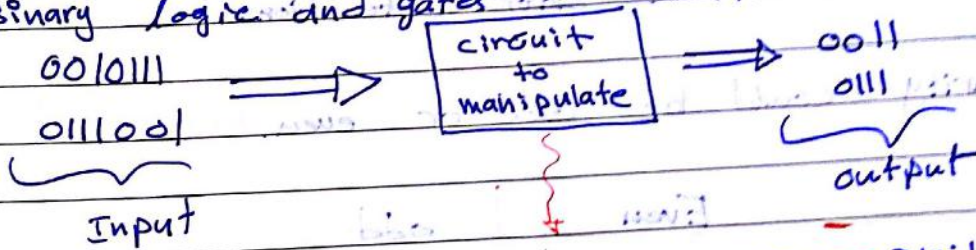 Binary logic and gates
0010111
0111001
Input
circuit
to
manipulate
0011
0111
output